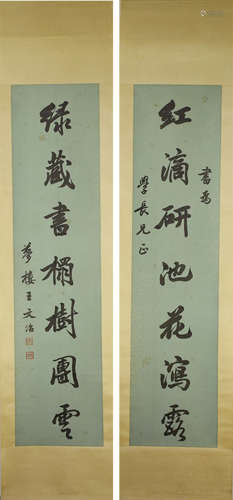 書為
紅滴研池花瀉露
學長兄正
綠藏書榻樹團雲
夢樓王文治